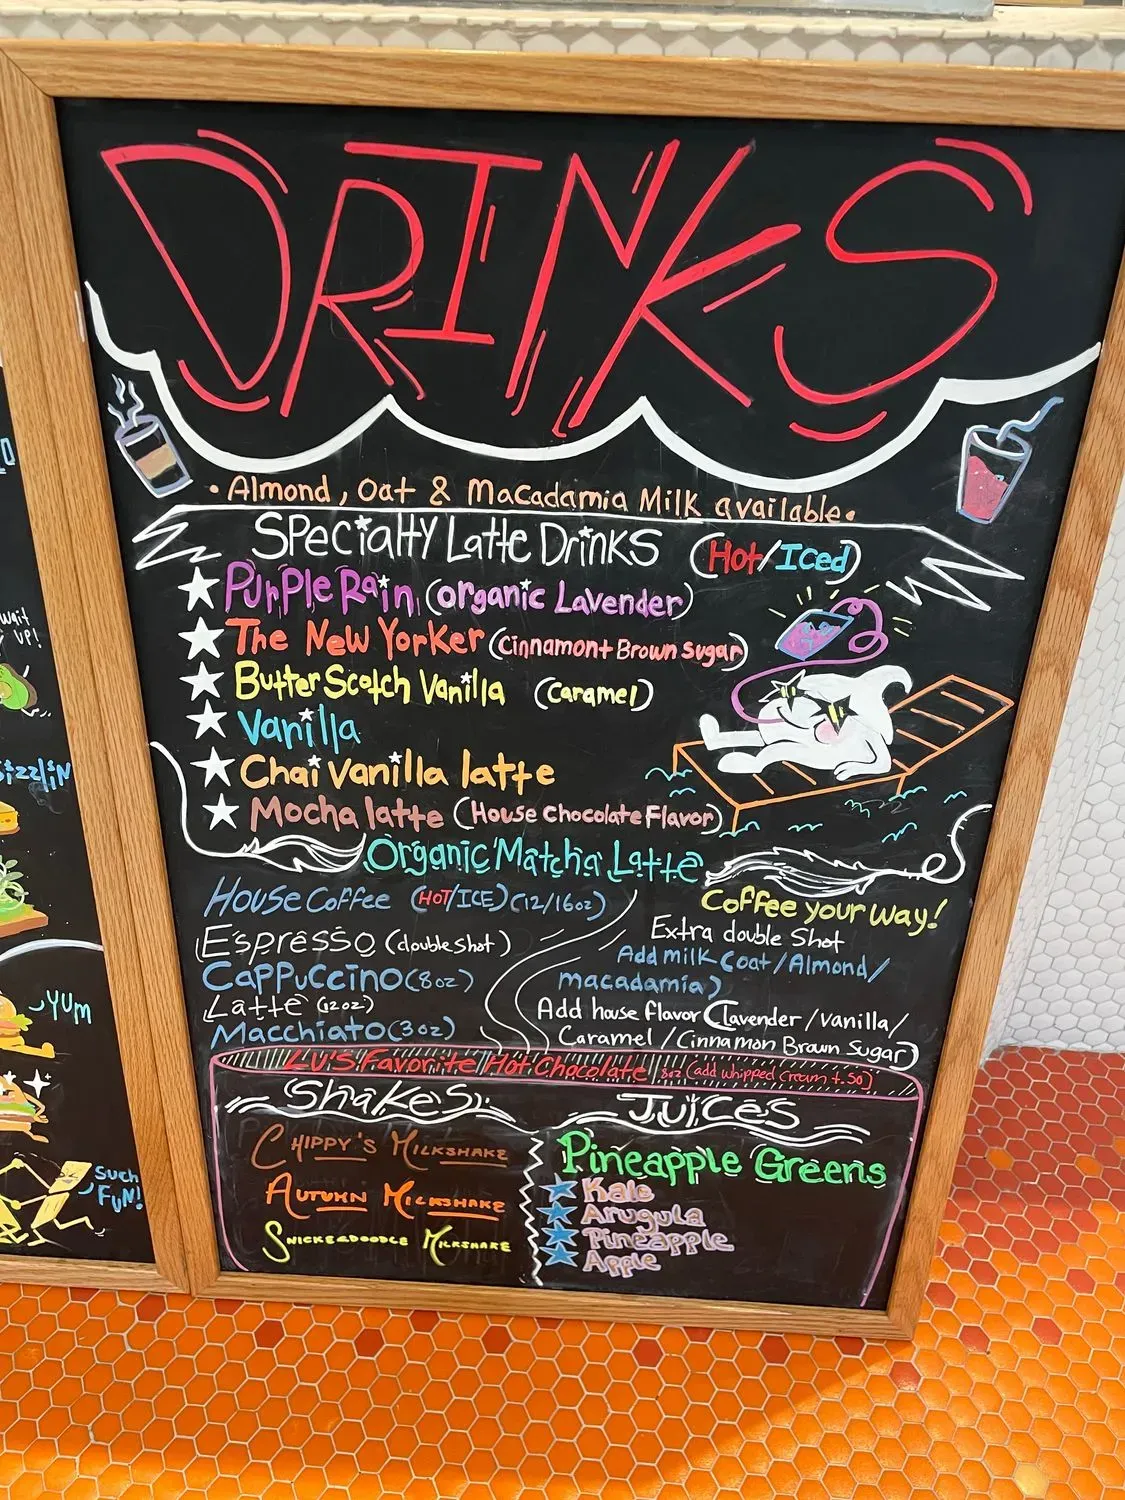 DRINKS
• Almond, Oat & Macadamia Milk available •
Specialty Latte Drinks (Hot/Iced)
Purple Rain (organic Lavender)
The New Yorker (Cinnamon + Brown Sugar)
ButterScotch Vanilla (Caramel)
Vanilla
Chai Vanilla latte
Mocha latte (House Chocolate Flavor)
Organic Matcha Latte
House Coffee (HOT/ICE) (12/16oz)
Espresso (double shot)
Cappuccino (8oz)
Latte (12oz)
Macchiato (3oz)
Coffee your way!
Extra double Shot
Add milk (oat/Almond/
macadamia)
Add house flavor (Lavender/Vanilla/
Caramel/Cinnamon Brown Sugar)
LV'S Favorite Hot Chocolate 8oz (add whipped Cream +.50)
Shakes
Chippy's Milkshake
Autumn Milkshake
Snickerdoodle Milkshake
Juices
Pineapple Greens
Kale
Arugula
Pineapple
Apple
wait
UP!
Sizzlin
YUM
Such
FUN!